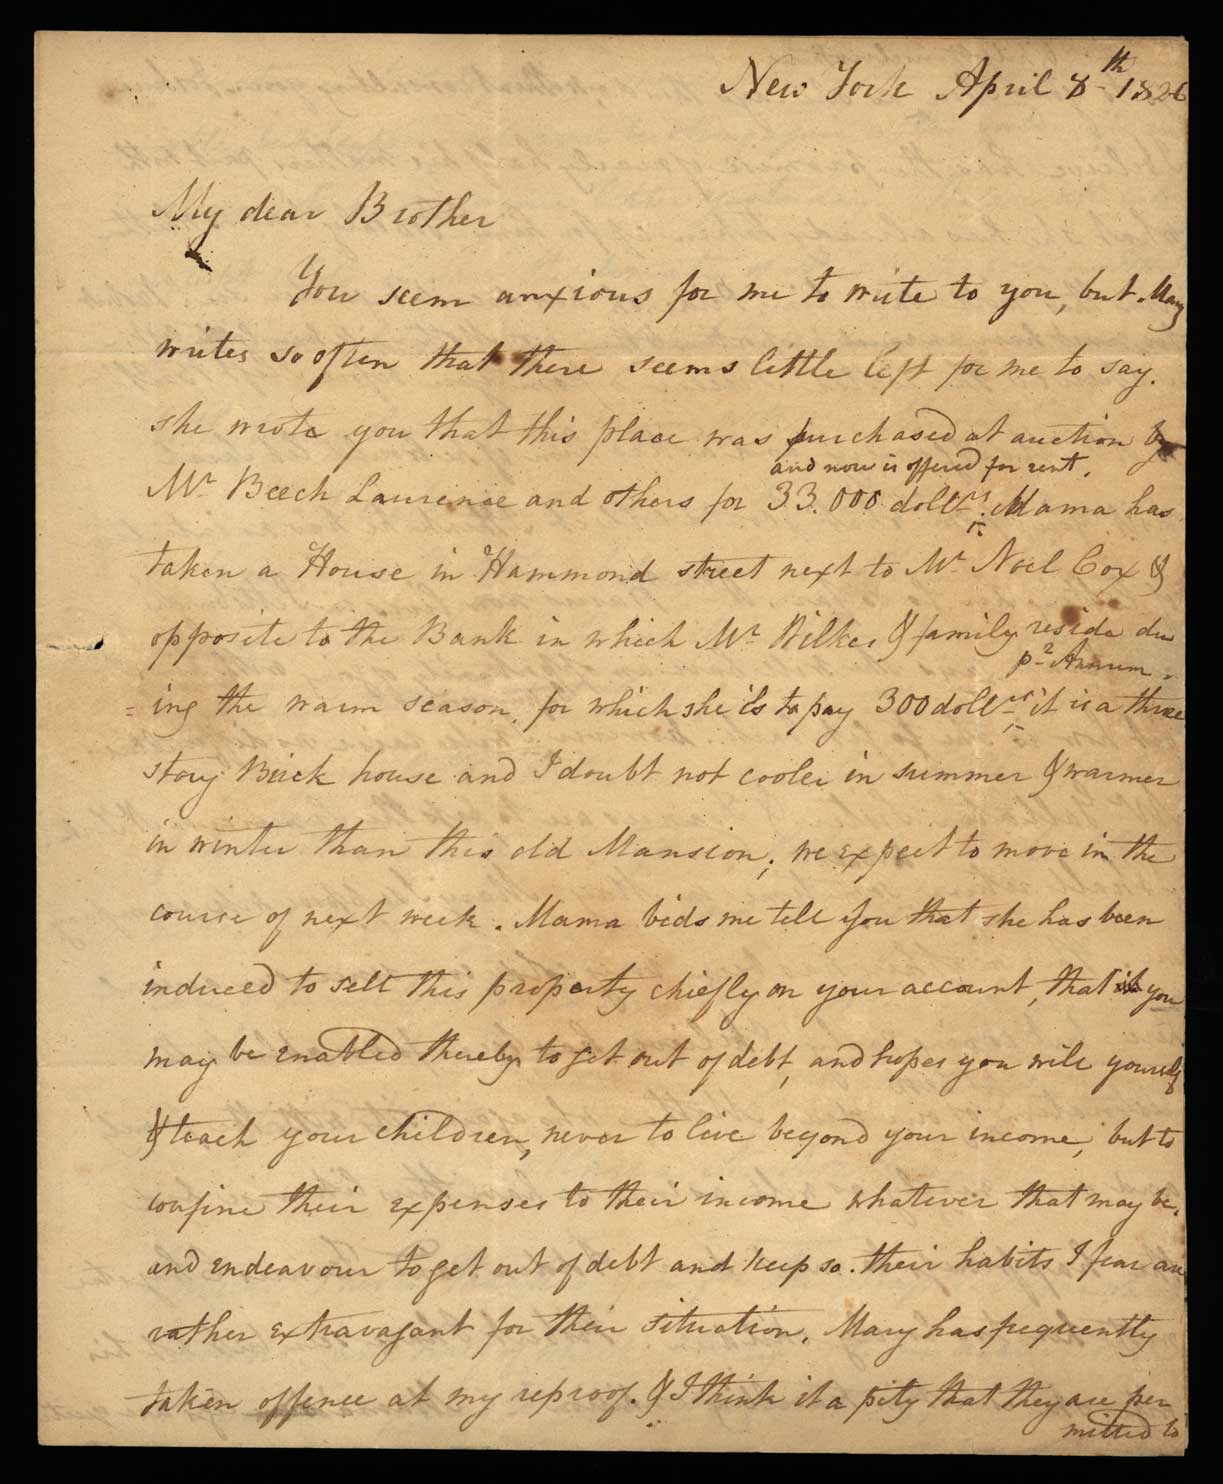 New York April 8th 1826
My dear Brother
You seem anxious for me to write to you, but Mary
writes so often that there seems little left for me to say.
she wrote you that this place was purchased at auction by
and now is offered for rent.
Mr Beech Laurence and others for 33.000 dollrs. Mama has
taken a House in Hammond street next to Mr Noel Cox &
opposite to the Bank in which Mr Wilkes & family reside du
pr Annum.
=ing the warm season. for which she is to pay 300 dollrs it is a three
story Brick house and I doubt not cooler in summer & warmer
in winter than this old Mansion; we expect to move in the
course of next week. Mama bids me tell you that she has been
induced to sell this property chiefly on your account, that you
may be enabled thereby to get out of debt, and hopes you will yourself
& teach your children, never to live beyond your income, but to
confine their expenses to their income whatever that may be,
and endeavour to get out of debt and keep so. their habits I fear are
rather extravagant for their situation. Mary has frequently
taken offence at my reproof. & I think it a pity that they are per
mitted to